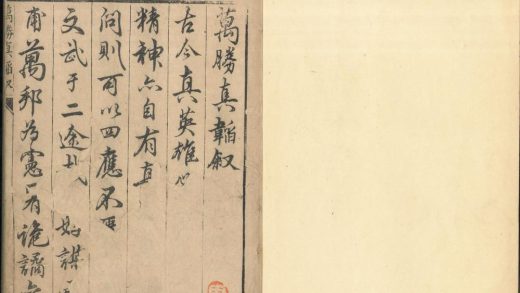 萬勝真韜叙
古今真英雄
精神亦自有真
問則可以四應不
文武于二途哉 好謀
甫萬邦為憲有詭譎
萬勝真韜叙